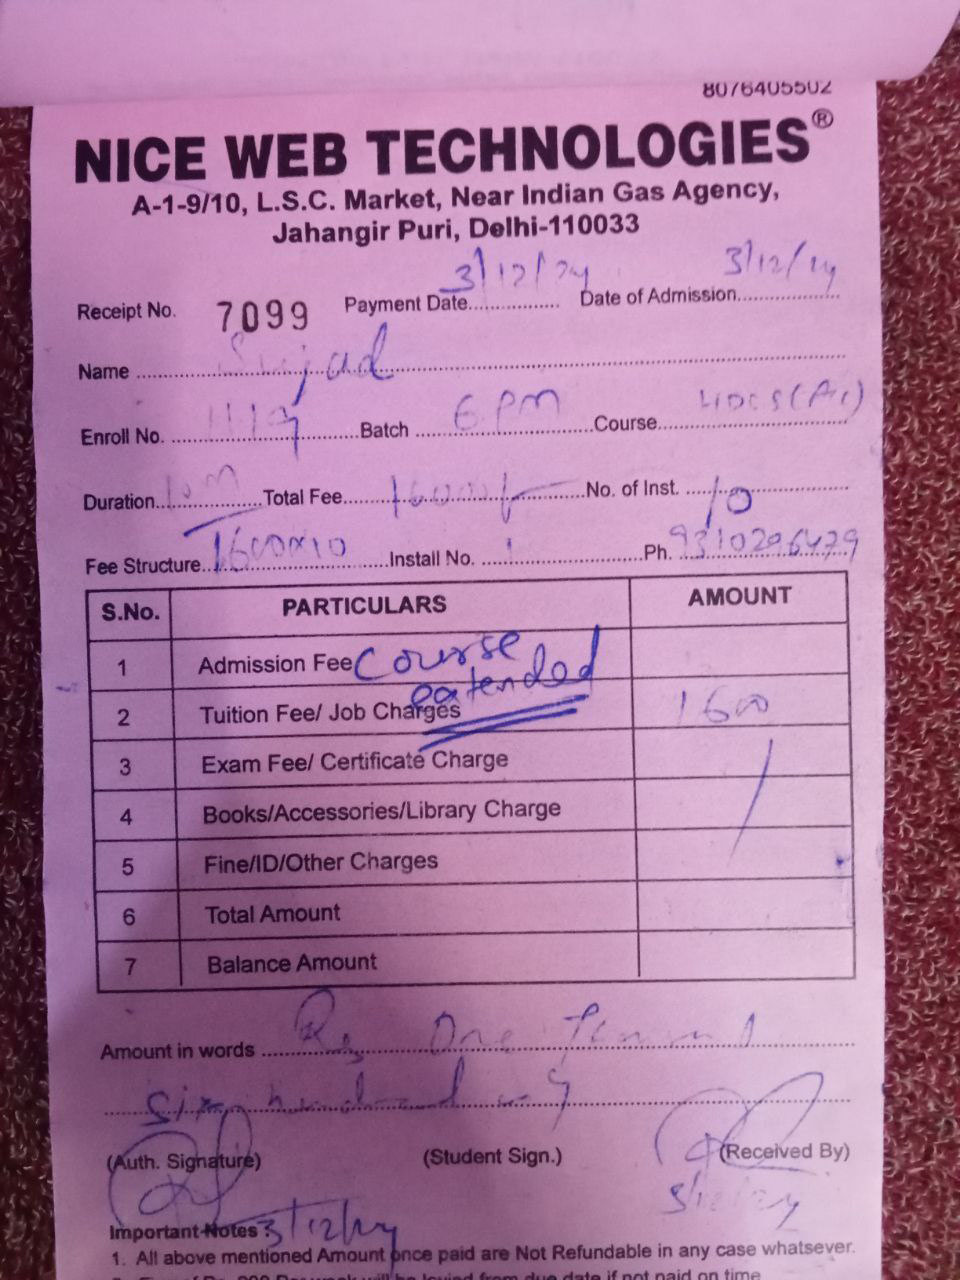 8076405502
NICE WEB TECHNOLOGIES®
A-1-9/10, L.S.C. Market, Near Indian Gas Agency,
Jahangir Puri, Delhi-110033
Receipt No. 7099 Payment Date 3/12/24 Date of Admission 3/12/24
Name
Enroll No. Batch 6 PM Course
Duration 10M Total Fee 16000/- No. of Inst. 10
Fee Structure 1600x10 Install No. 1 Ph. 9310296479
S.No. PARTICULARS AMOUNT
1 Admission Fee Course
extended
2 Tuition Fee/ Job Charges 1600
3 Exam Fee/ Certificate Charge
4 Books/Accessories/Library Charge
5 Fine/ID/Other Charges
6 Total Amount
7 Balance Amount
Amount in words Rs One Thousand
six hundred only
(Auth. Signature) (Student Sign.) (Received By)
3/12/24
Important Notes : 3/12/24
1. All above mentioned Amount once paid are Not Refundable in any case whatsever.
from due date if not paid on time